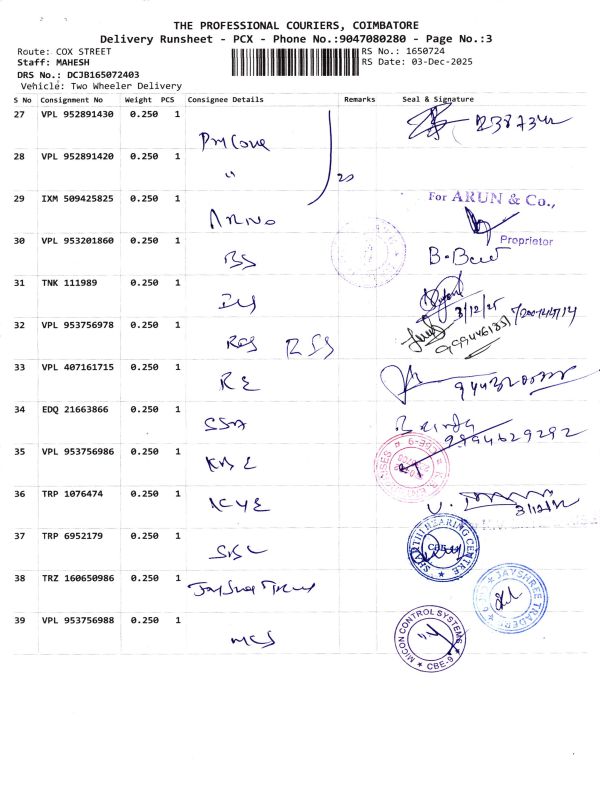 THE PROFESSIONAL COURIERS, COIMBATORE
Delivery Runsheet - PCX - Phone No.:9047080280 - Page No.:3
Route: COX STREET
RS No.: 1650724
Staff: MAHESH
RS Date: 03-Dec-2025
DRS No.: DCJB165072403
Vehicle: Two Wheeler Delivery
S No Consignment No Weight PCS Consignee Details Remarks Seal & Signature
27 VPL 952891430 0.250 1
28 VPL 952891420 0.250 1
"
20
29 IXM 509425825 0.250 1
For ARUN & Co.,
Proprietor
30 VPL 953201860 0.250 1
BS
31 TNK 111989 0.250 1
3/12/25
32 VPL 953756978 0.250 1
RSS
33 VPL 407161715 0.250 1
RE
34 EDQ 21663866 0.250 1
SSA
9994629292
35 VPL 953756986 0.250 1
KBE
36 TRP 1076474 0.250 1
37 TRP 6952179 0.250 1
SHANTHI BEARING CENTRE
CBE
38 TRZ 160650986 0.250 1
JAYSHREE TRADERS
39 VPL 953756988 0.250 1
MCS
MICON CONTROL SYSTEMS
CBE-9